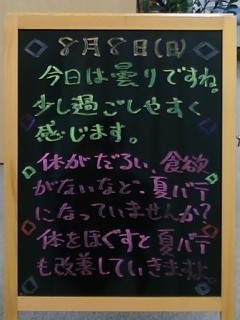 8月8日(日)
今日は曇りですね。
少し過ごしやすく
感じます。
体がだるい、食欲
がないなど、夏バテ
になっていませんか?
体をほぐすと夏バテ
も改善していきますよ。